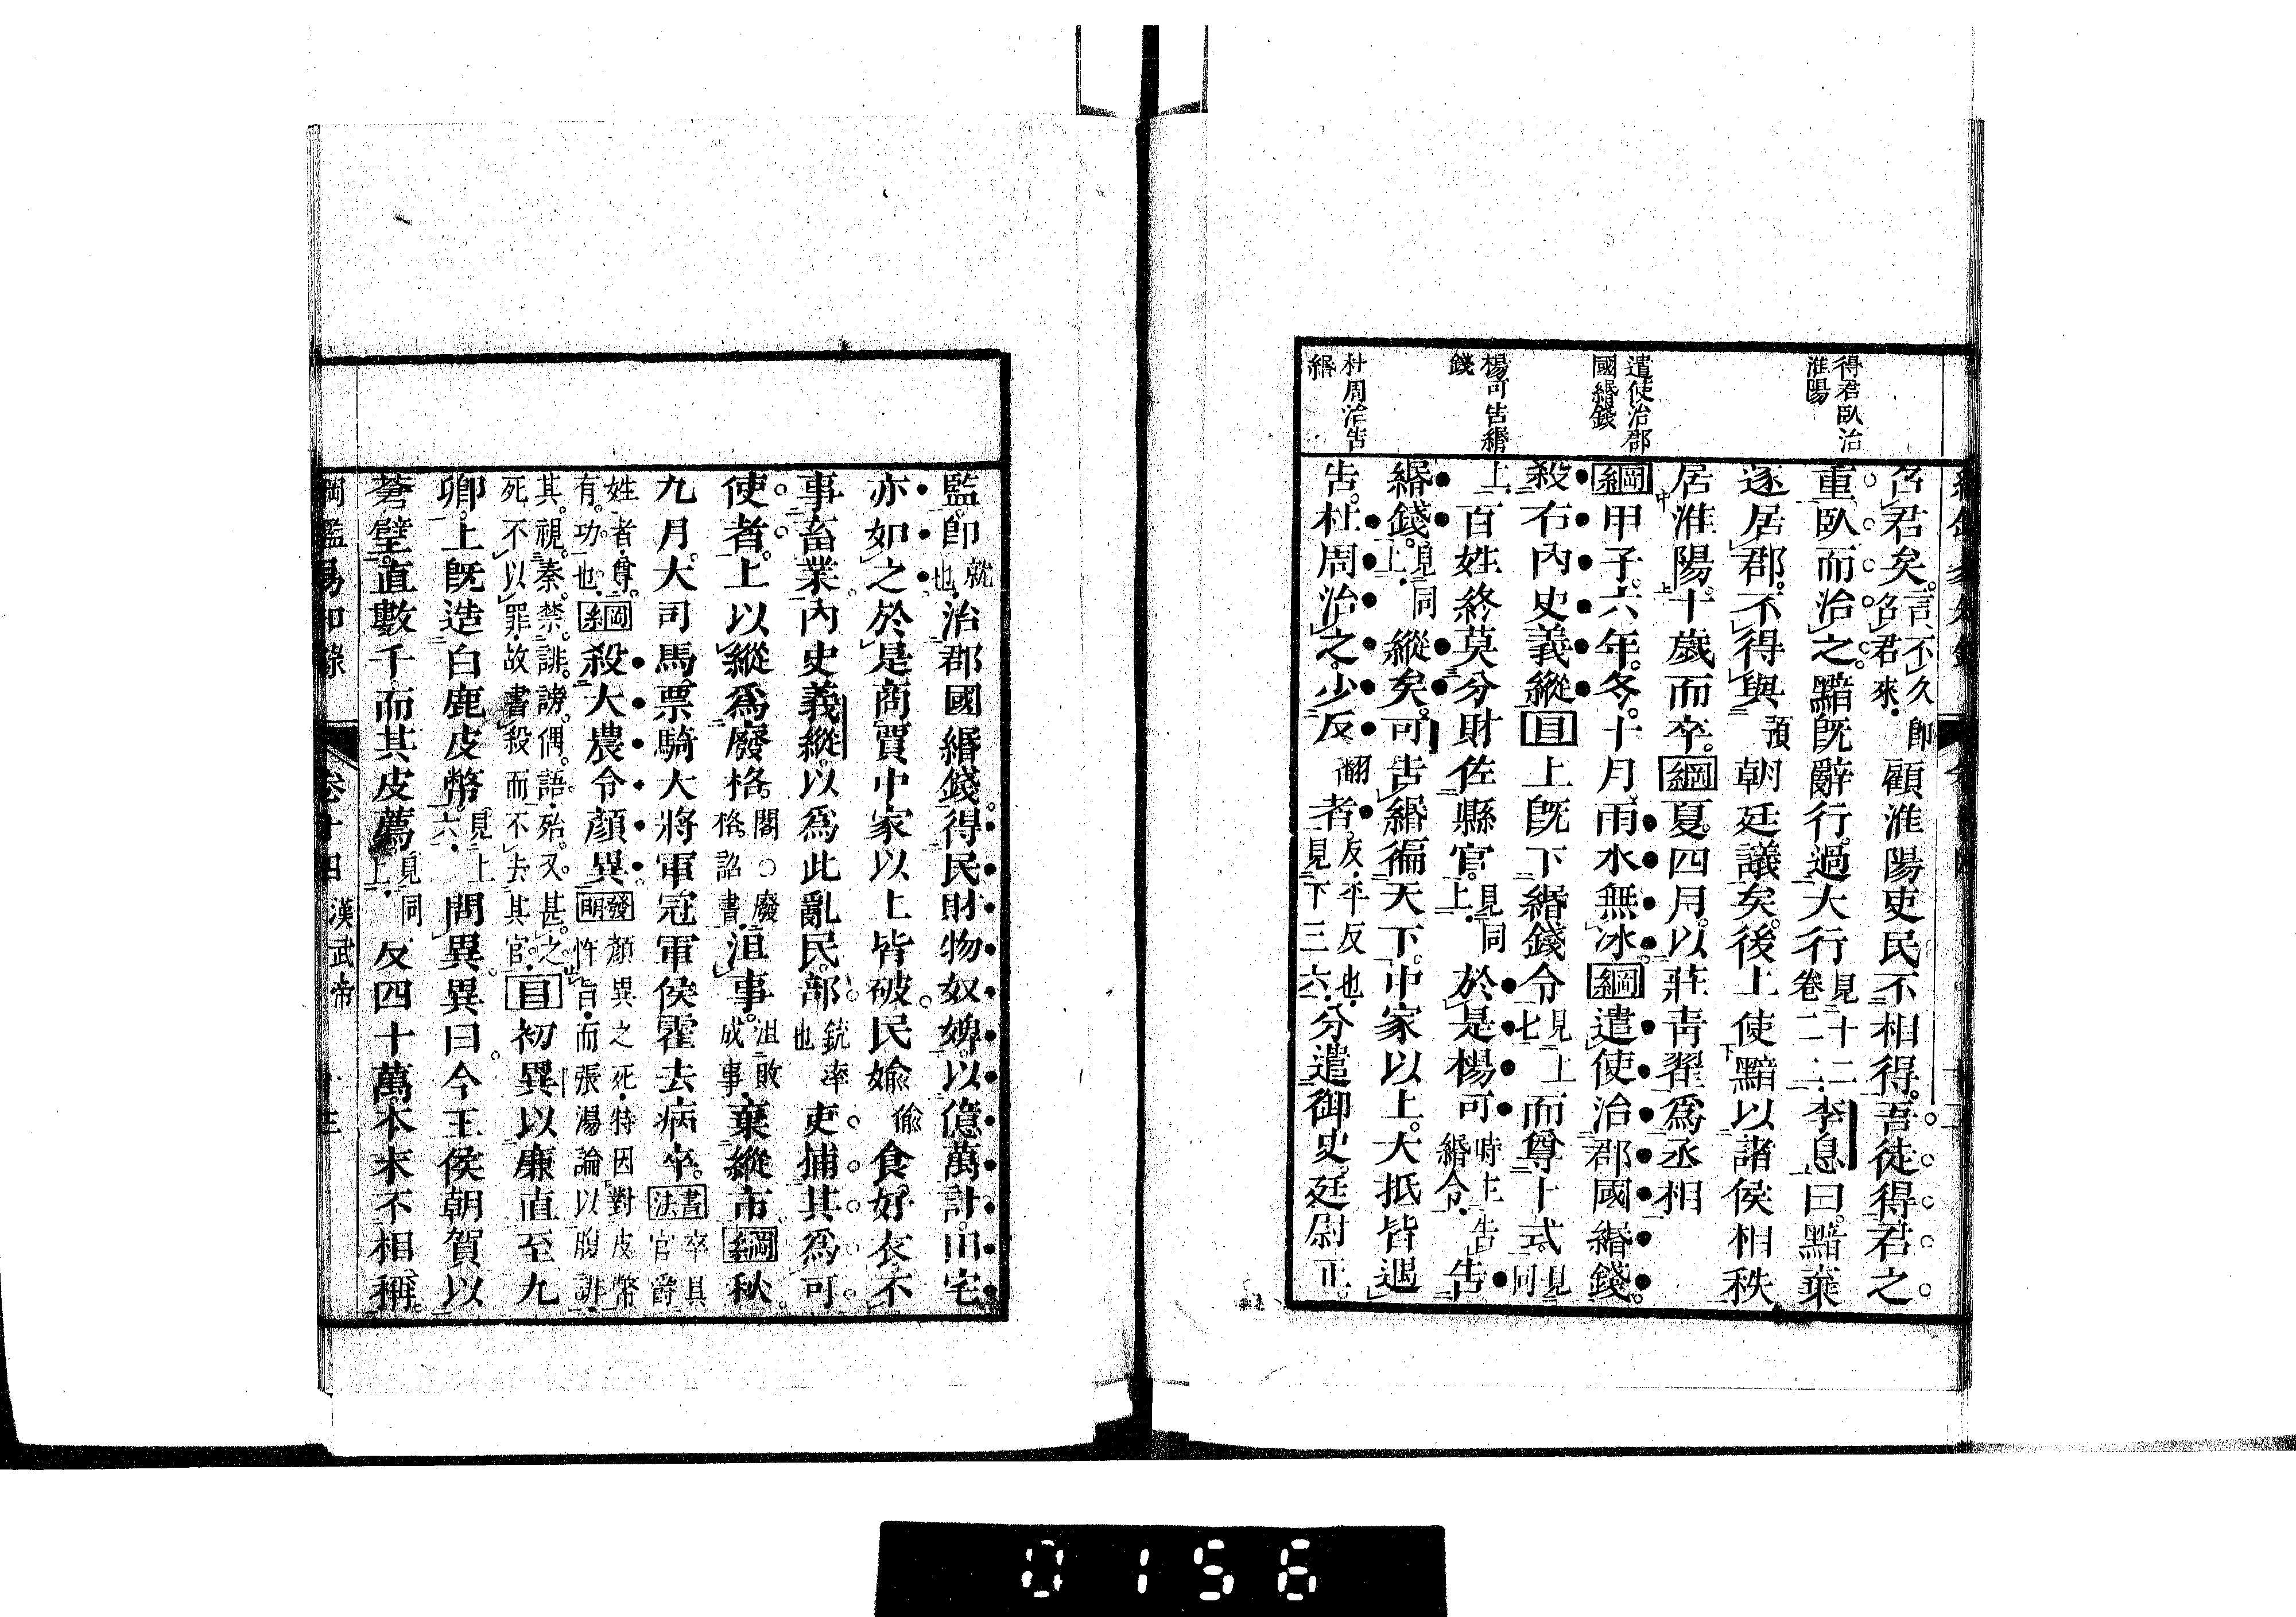 得君臥治
淮陽
遣使治郡
國緡錢
楊可告緡
錢
杜周治告
緡
召君矣。言不久即召君來。顧淮陽吏民不相得。吾徒得君之
重。臥而治之。黯旣辭行。過大行見十二卷二二。李息曰。黯棄
逐居郡。不得與預朝廷議矣。後上使黯以諸侯相秩
居淮陽。十歲而卒。綱夏。四月。以莊靑翟爲丞相
綱甲子。六年。冬。十月。雨水無冰。綱遣使治郡國緡錢。
殺右內史義縱目上旣下緡錢令見上七而尊卜式。見同
上。百姓終莫分財佐縣官。見同上。於是楊可時主告緡令。告
緡錢。見同上。縱矣。可告緡徧天下。中家以上。大抵皆遇
告。杜周治之。少反翻者。反。平反也。見下三六。分遣御史。廷尉正。
監。卽就也。治郡國緡錢。得民財物奴婢。以億萬計。田宅
亦如之於是商賈中家以上皆破。民媮偷食好衣。不
事畜業。內史義縱。以爲此亂民。部銃率也吏捕其爲可
使者。上以縱爲廢格。閣○廢格詔書。沮事。沮敗成事。棄縱市。綱秋。
九月。大司馬票騎大將軍冠軍侯霍去病卒。書法卒具官爵
姓者。尊有功也。綱殺大農令顏異發明顏異之死。特因對皮幣忤旨。而張湯論以腹誹。
其視秦禁誹謗偶語。殆又甚之。死不以罪。故書殺而不去其官。目初異以廉直至九
卿。上旣造白鹿皮幣。見上六。問異。異曰。今王侯朝賀以
蒼璧。直數千。而其皮薦見同上。反四十萬。本末不相稱。
漢武帝
0156